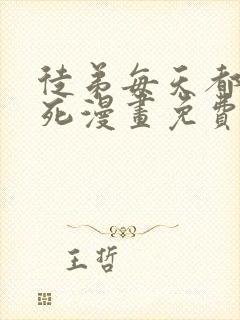 徒弟每天都
死漫畫免費
王哲